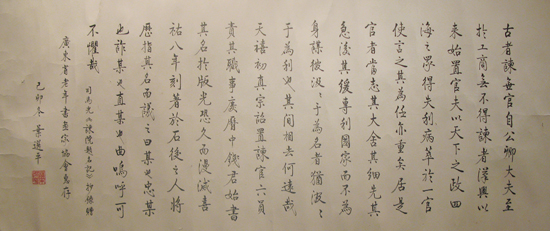 古者諫無官自公卿大夫至
於工商無不得諫者漢興以
来始置官夫以天下之政四
海之眾得失利病萃於一官
使言之其為任亦重矣居是
官者當志其大舍其細先其
急後其緩專利國家而不為
身謀彼汲〻于為名者猶汲〻
于為利也其間相去何遠哉
天禧初真宗詔置諫官六員
責其職事慶曆中錢君始書
其名於版光恐久而漫滅嘉
祐八年刻著於石後之人將
歷指其名而議之曰某也忠某
也詐某也直某也曲嗚呼可
不懼哉
司馬光之諫院題名記抄贈
廣東省老年書畫家協會惠存
己卯冬 葉選平